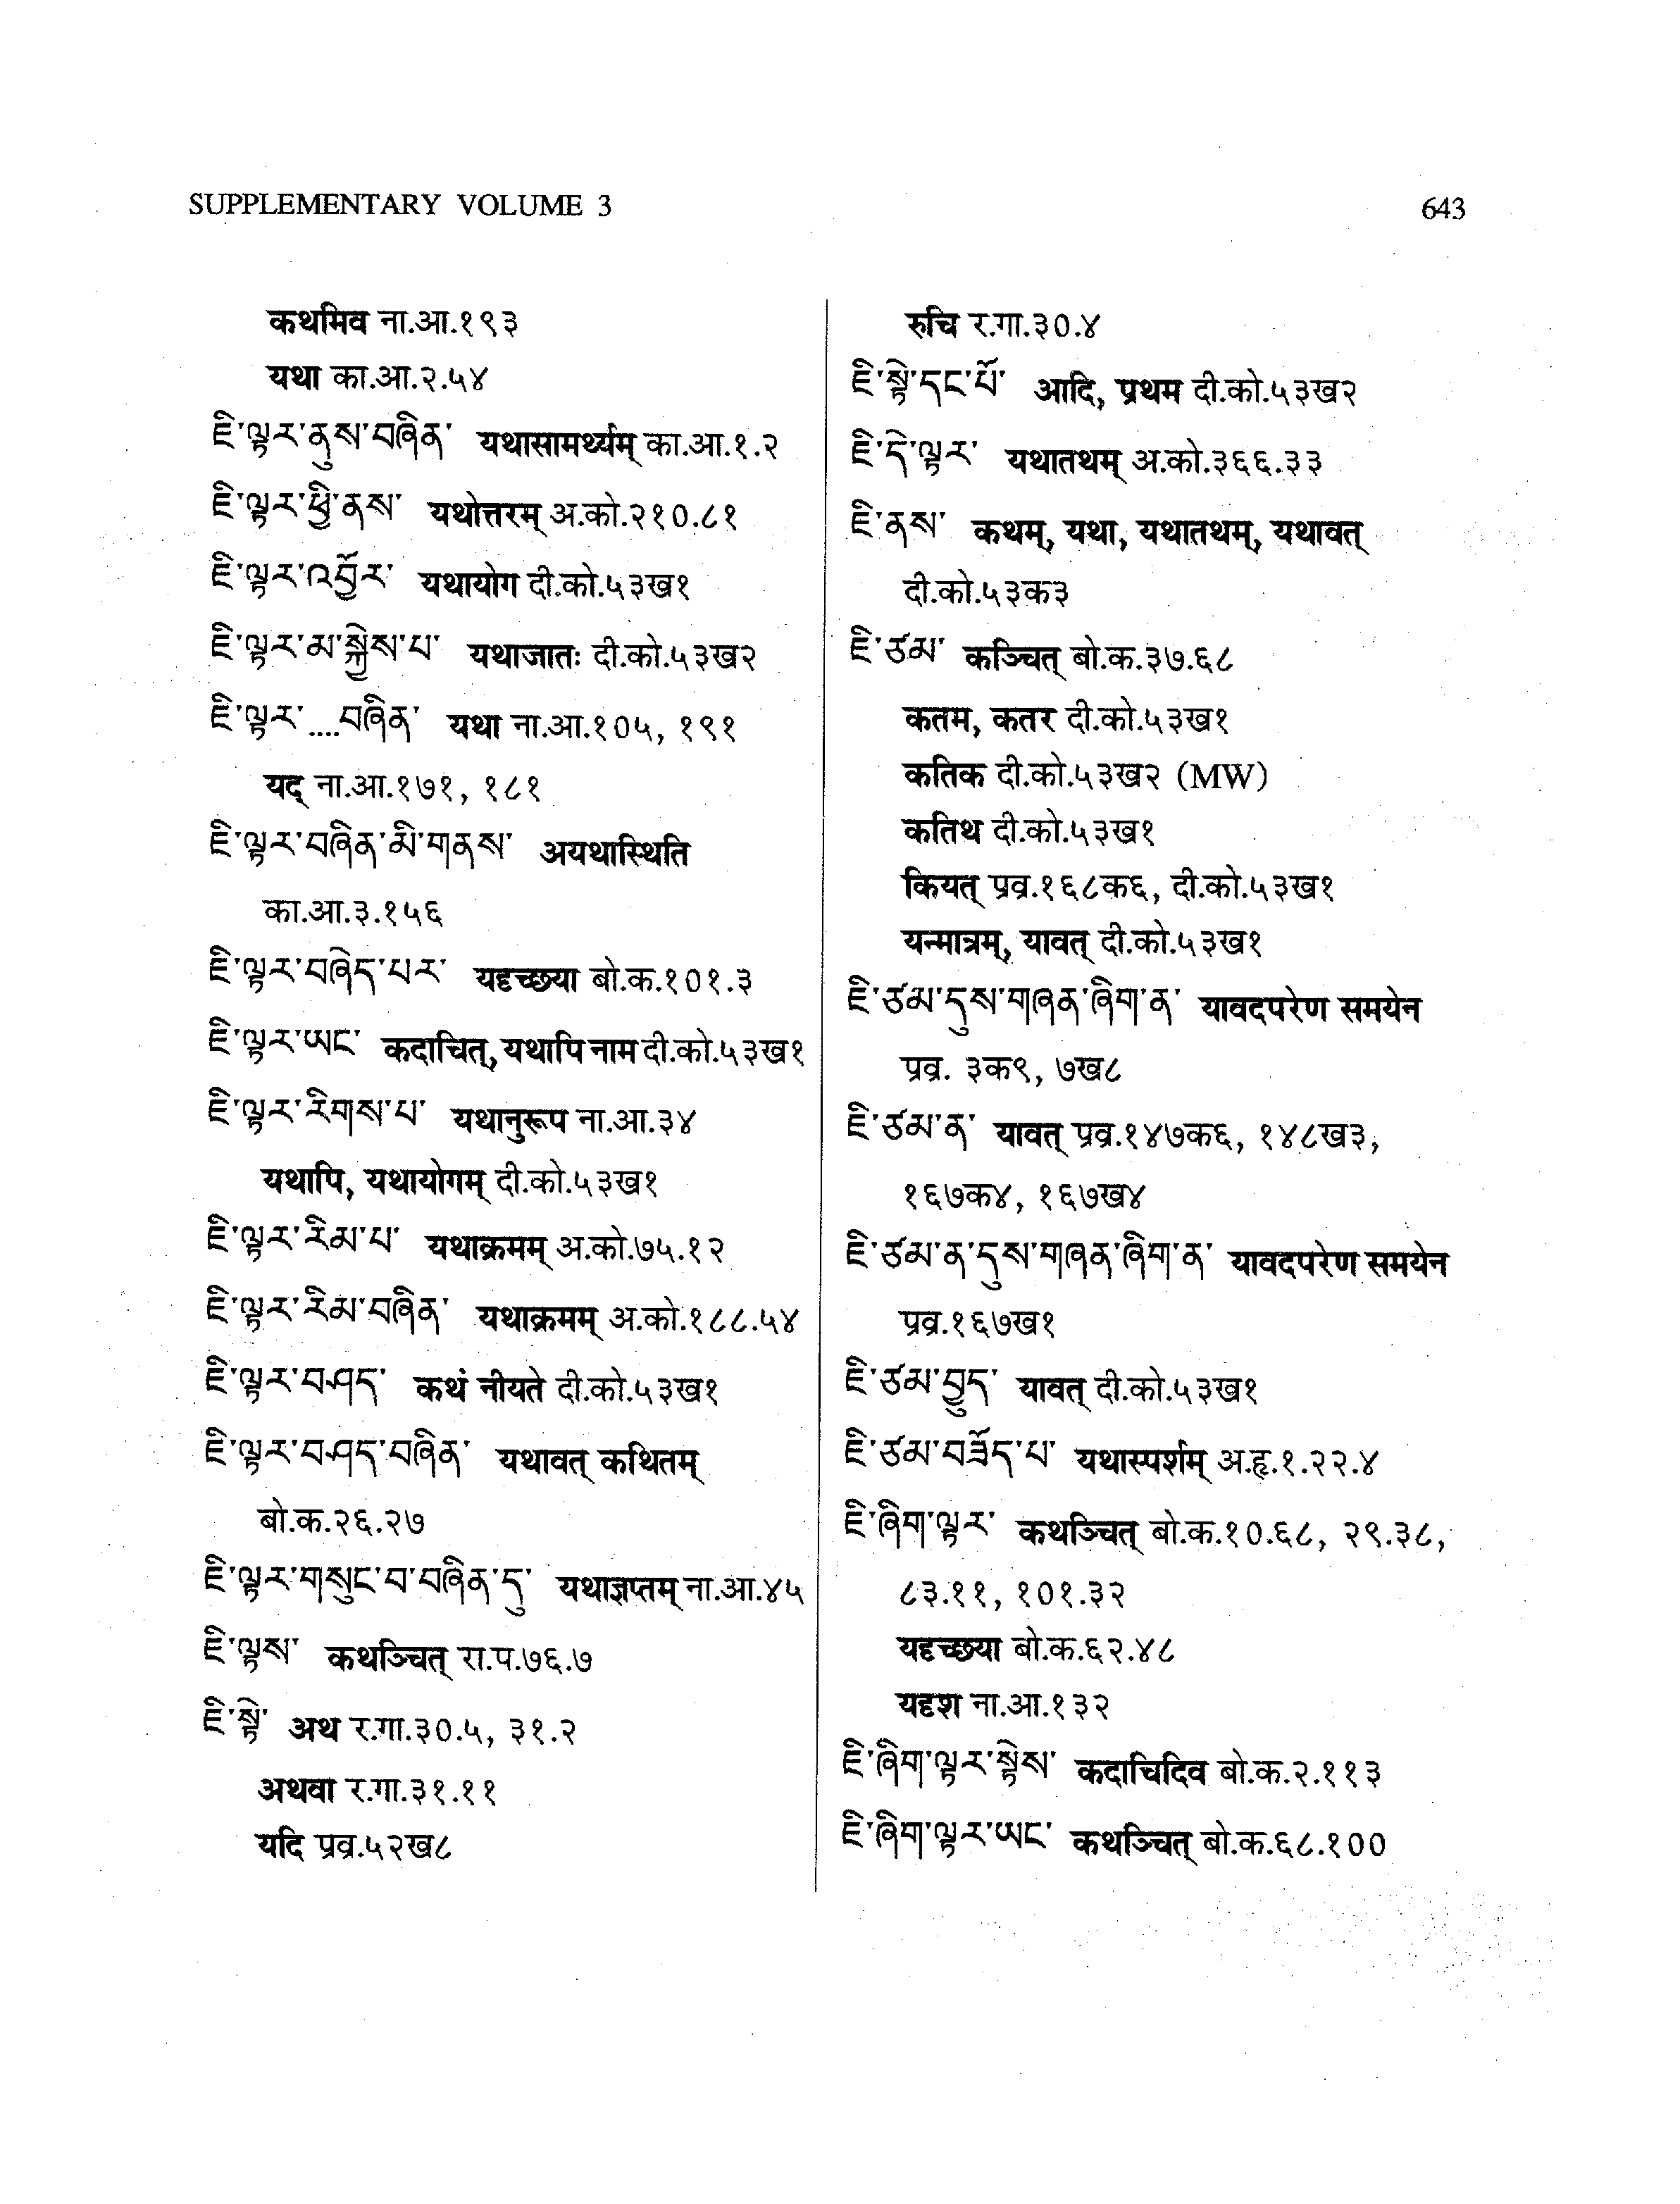 SUPPLEMENTARY VOLUME 3
643
कथमिव ना.आ.१९३
यथा का.आ.२.५४
ཇི་ལྟར་ནུས་བཞིན་ यथासामर्थ्यम् का.आ.१.२
ཇི་ལྟར་ཕྱི་ནས་ यथोत्तरम् अ.को.२१०.८१
ཇི་ལྟར་འབྱོར་ यथायोग दी.को.५३ख१
ཇི་ལྟར་མ་སྐྱེས་པ་ यथाजातः दी.को.५३ख२
ཇི་ལྟར་....བཞིན་ यथा ना.आ.१०५, १९१
यद् ना.आ.१७१, १८१
ཇི་ལྟར་བཞིན་མི་གནས་ अयथास्थिति
का.आ.३.१५६
ཇི་ལྟར་བཞེད་པར་ यदृच्छया बो.क.१०१.३
ཇི་ལྟར་ཡང་ कदाचित्, यथापि नाम दी.को.५३ख१
ཇི་ལྟར་རིགས་པ་ यथानुरूप ना.आ.३४
यथापि, यथायोगम् दी.को.५३ख१
ཇི་ལྟར་རིམ་པ་ यथाक्रमम् अ.को.७५.१२
ཇི་ལྟར་རིམ་བཞིན་ यथाक्रमम् अ.को.१८८.५४
ཇི་ལྟར་བཤད་ कथं नीयते दी.को.५३ख१
ཇི་ལྟར་བཤད་བཞིན་ यथावत् कथितम्
बो.क.२६.२७
ཇི་ལྟར་གསུང་བ་བཞིན་དུ་ यथाज्ञप्तम् ना.आ.४५
ཇི་ལྟས་ कथञ्चित् रा.प.७६.७
ཇི་སྟེ་ अथ र.गा.३०.५, ३१.२
अथवा र.गा.३१.११
यदि प्रव्र.५२ख८
रुचि र.गा.३०.४
ཇི་སྟེ་དང་པོ་ आदि, प्रथम दी.को.५३ख२
ཇི་དེ་ལྟར་ यथातथम् अ.को.३६६.३३
ཇི་ནས་ कथम्, यथा, यथातथम्, यथावत्
दी.को.५३क३
ཇི་ཙམ་ कञ्चित् बो.क.३७.६८
कतम, कतर दी.को.५३ख१
कतिक दी.को.५३ख२ (MW)
कतिथ दी.को.५३ख१
कियत् प्रव्र.१६८क६, दी.को.५३ख१
यन्मात्रम्, यावत् दी.को.५३ख१
ཇི་ཙམ་དུས་གཞན་ཞིག་ན་ यावदपरेण समयेन
प्रव्र. ३क९, ७ख८
ཇི་ཙམ་ན་ यावत् प्रव्र.१४७क६, १४८ख३,
१६७क४, १६७ख४
ཇི་ཙམ་ན་དུས་གཞན་ཞིག་ན་ यावदपरेण समयेन
प्रव्र.१६७ख१
ཇི་ཙམ་བྱུད་ यावत् दी.को.५३ख१
ཇི་ཙམ་བཟོད་པ་ यथास्पर्शम् अ.हृ.१.२२.४
ཇི་ཞིག་ལྟར་ कथञ्चित् बो.क.१०.६८, २९.३८,
८३.११, १०१.३२
यदृच्छया बो.क.६२.४८
यदृश ना.आ.१३२
ཇི་ཞིག་ལྟར་སྟེས་ कदाचिदिव बो.क.२.११३
ཇི་ཞིག་ལྟར་ཡང་ कथञ्चित् बो.क.६८.१००